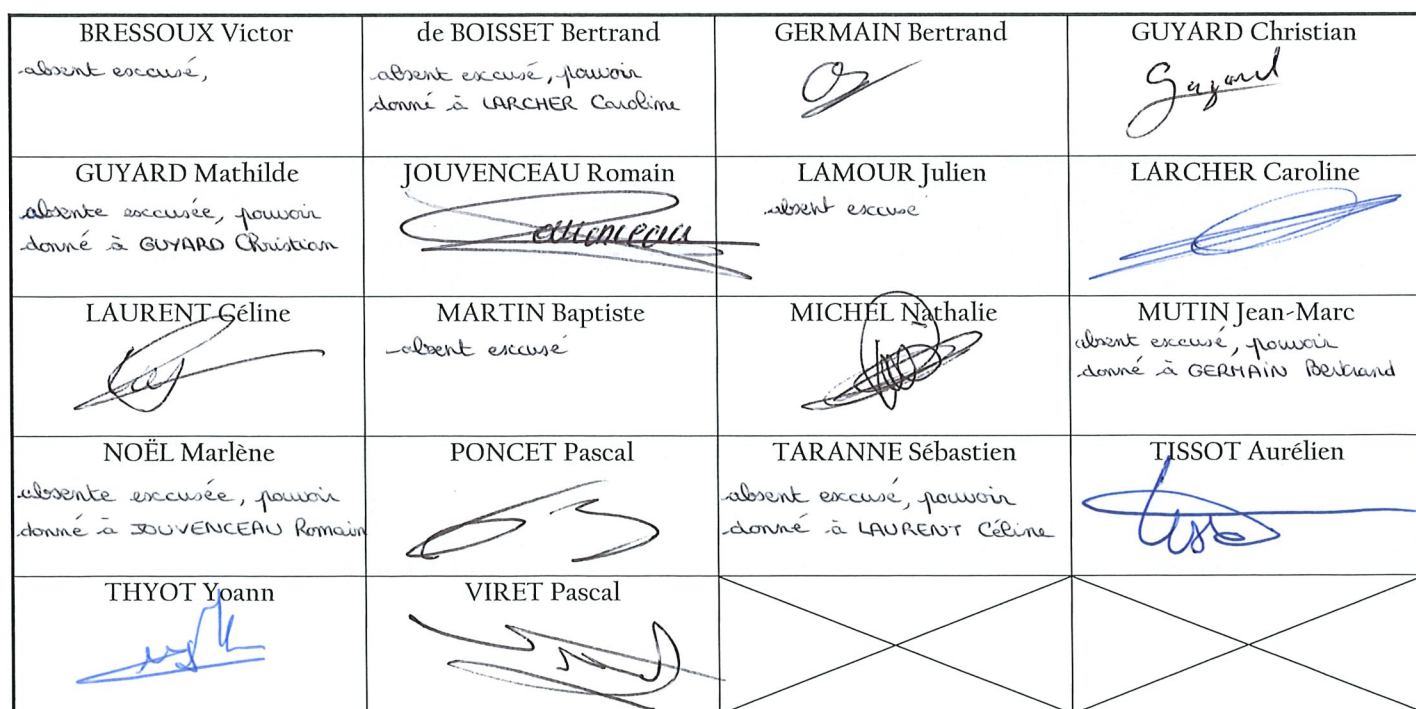 BRESSOUX Victor
absent excusé,
de BOISSET Bertrand
absent excusé, pouvoir
donné à LARCHER Caroline
GERMAIN Bertrand
GUYARD Christian
Guyard
GUYARD Mathilde
absente excusée, pouvoir
donné à GUYARD Christian
JOUVENCEAU Romain
Jouvenceau
LAMOUR Julien
absent excusé
LARCHER Caroline
LAURENT Céline
MARTIN Baptiste
absent excusé
MICHEL Nathalie
MUTIN Jean-Marc
absent excusé, pouvoir
donné à GERMAIN Bertrand
NOËL Marlène
absente excusée, pouvoir
donné à JOUVENCEAU Romain
PONCET Pascal
TARANNE Sébastien
absent excusé, pouvoir
donné à LAURENT Céline
TISSOT Aurélien
THYOT Yoann
VIRET Pascal